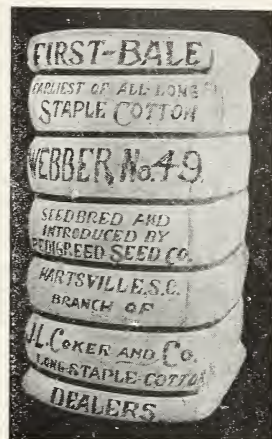 FIRST-BALE
EARLIEST OF ALL-LONG
STAPLE COTTON
WEBBER No.49.
SEEDBRED AND
INTRODUCED BY
PEDIGREED SEED CO.
HARTSVILLE.S.C.
BRANCH OF
J.L.COKER AND CO.
LONG-STAPLE-COTTON
DEALERS